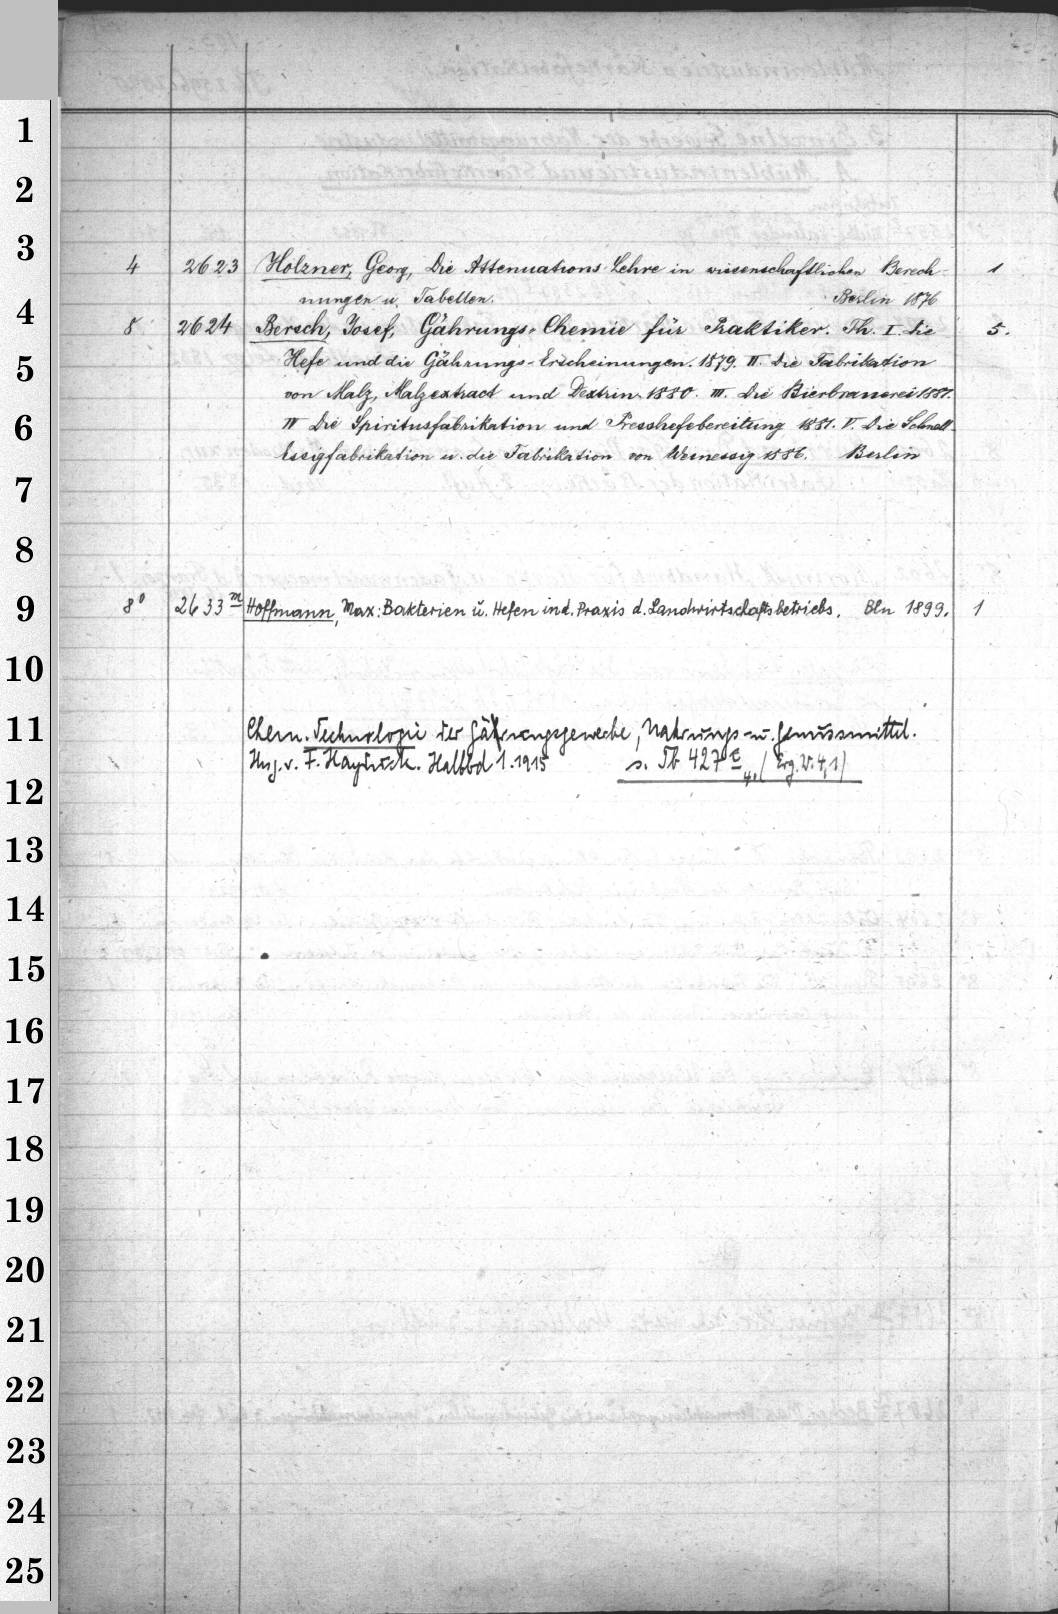 1
2
3
4 2623 Holzner, Georg, Die Attenuations-Lehre in wissenschaftlichen Berech- 1
nungen u. Tabellen. Berlin 1876
4
8 2624 Bersch, Josef, Gährungs-Chemie für Praktiker. Th. I. Die 5.
Hefe und die Gährungs-Erscheinungen. 1879. II. Die Fabrikation
5
von Malz, Malzextract und Dextrin 1880. III. Die Bierbrauerei 1881.
6
IV Die Spiritusfabrikation und Presshefebereitung 1881. V. Die Schnell-
Essigfabrikation u. die Fabrikation von Weinessig 1886. Berlin
7
8
9
8° 2633 m Hoffmann, Max: Bakterien u. Hefen in d. Praxis d. Landwirtschaftsbetriebs. Bln 1899. 1
10
11
Chem. Technologie der Gährungsgewerbe, Nahrungs- u. Genussmittel.
Hrsg. v. F. Hayduck. Halbbd 1. 1915 s. Tb 427 t 4° (Erg. W. 4,1)
12
13
14
15
16
17
18
19
20
21
22
23
24
25